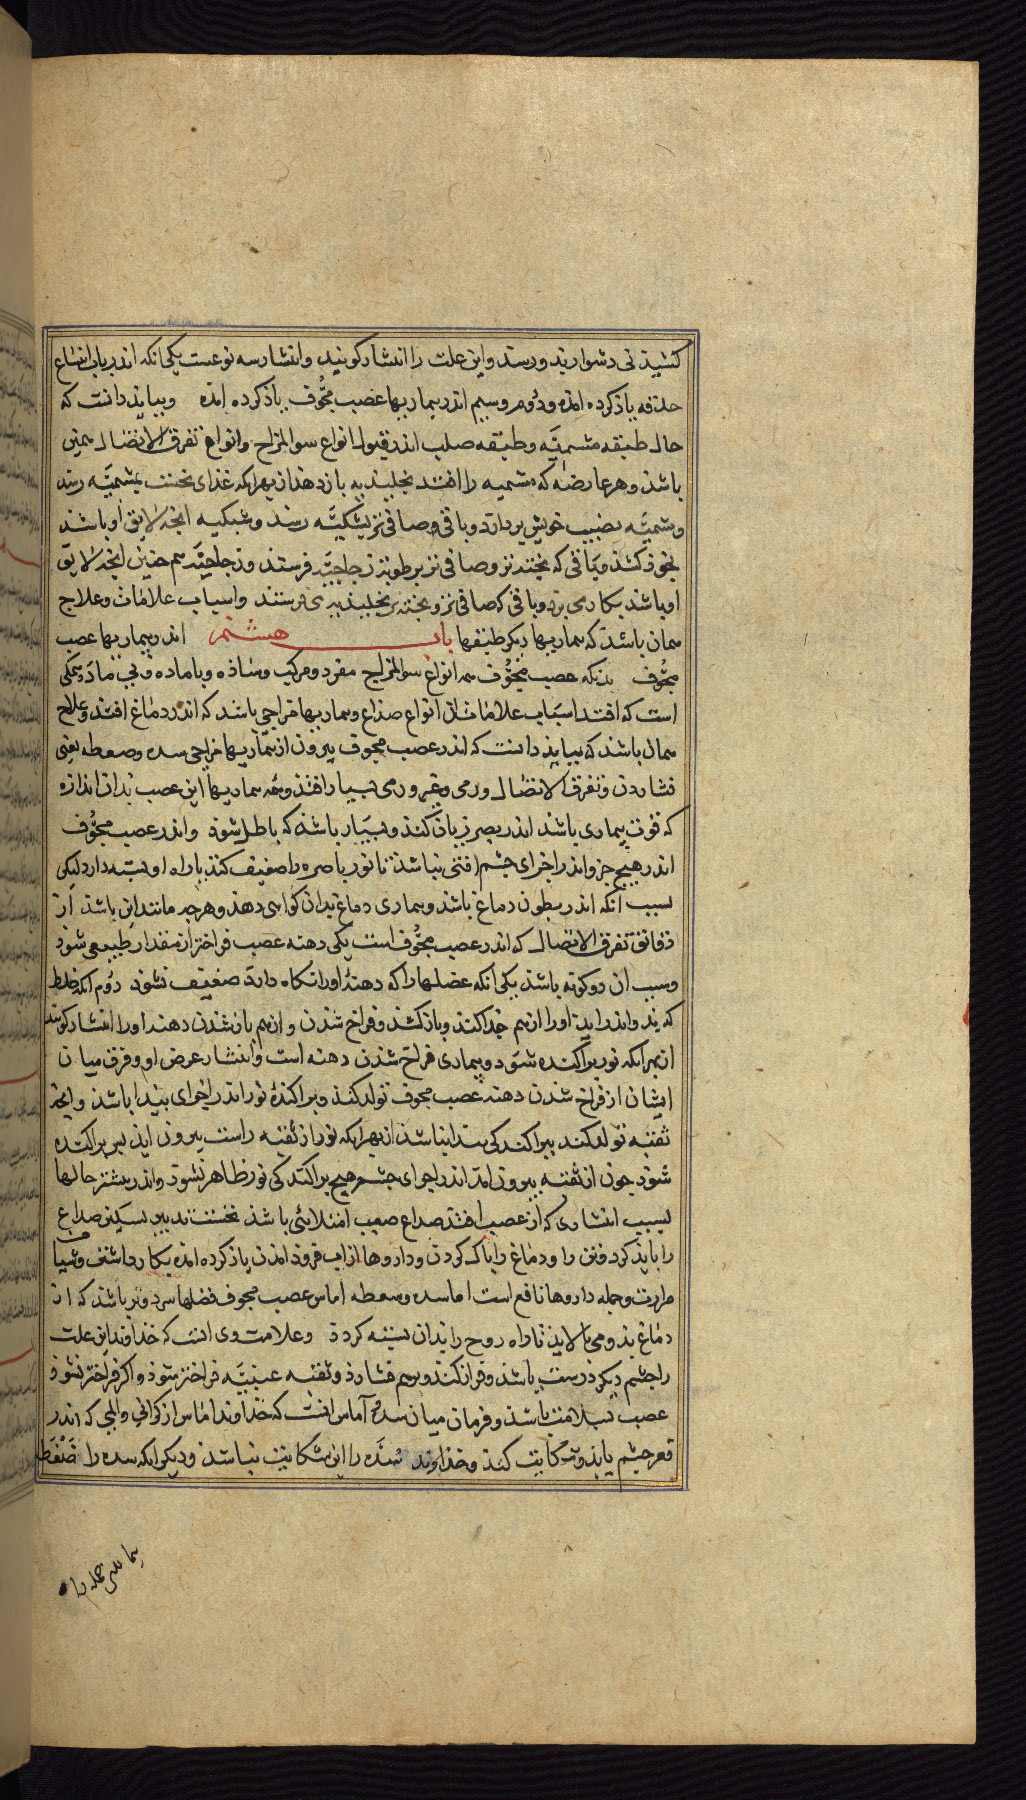 کشیدنی دشوار بذو رسد و این علت را انتشار کویند و انتشار سه نوعست یکی انکه اندر باب اتساع
حدقه یاذ کرده امذه و دُوم و سیم اندر بیماریها عصب مجُوف یاذ کرده اید و بباید دانست که
حال طبقه مشمیّه و طبقه صلب اندر قبول انواع سوالمزاج و انواع تفرق الاتصال همین
باشذ و هر عارضه که مشمیه را افتد بجلیذیه باز دهد از بهر انکه غذای نخست بمشمیّه رسد
و مشمیّه نصیب خویش بردارد و باقی و صافی تر بشبکیّه رسد و شبکیه انچه لایق او باشد
بخوذ کشذ و باقی که پخته تر و صافی تر برطوبة زجاجیّه فرستد و زجاجیّه هم چنین انچه لایق
او باشد بکار می برد و باقی که صافی تر و پخته تر بجلیذیه می فرستد و اسباب علامات و علاج
همان باشد که بیماریها دیکر طبقها باب هشتم اندر بیماریها عصب
مجُوف بدانکه عصب مجُوف همه انواع سوالمزاج مفرد و مرکب و ساذه و با ماده و بی ماده ممکن
است که افتد اسباب علامات ان انواع صداع و بیماریها مزاجی باشد که اندر دماغ افتد و علاج
همان باشد که بباید دانست که اندر عصب مجوف بیرون از بیماریها مزاجی سده و ضغطه یعنی
فشاردن و تفرق الاتصال و رمی و غیر ورمی بسیار افتذ و همه بیماریها این عصب بدان اندازه
که قوت بیماری باشد اندر بصر زیان کند و بسیار باشد که باطل شوذ و اندر عصب مجُوف
اندر هیچ جزو اندر اجزای چشم افتی نباشذ تا نور باصره را ضعیف کند یا راه او بسته دارد لیکن
بسبب انکه اندر بطون دماغ باشد و بیماری دماغ بدان کواهی دهذ و هرچه مانند این باشذ از
دقائق تفرق الاتصال که اندر عصب مجُوف است یکی دهنه عصب فراختر از مقدار طبیعی شوذ
و سبب ان دو کونه باشد یکی انکه عضلها را که دهنهٔ او را نکاه دارد ضعیف شود دوُم انکه خلط
که بذو اندر اید او را از هم جذا کند و باز کشد و فراخ شدن و از هم باز شدن دهنه او را انتشار کویند
از بهر انکه نور پراکنده شود و بیماری فراخ شذن دهنه است و انتشار عرض او و فرق میان
ایشان از فراخ شدن دهنه عصب مجوف تولد کند و پراکندهٔ نور اندر اجزای پیدا باشذ و انچه
ثقبه تولد کند پراکندکی پیدا نباشذ از بهر انکه نور از ثقبه راست بیرون ایذ پس پراکنده
شوذ چون از ثقبه بیرون امذ اندر اجزای چشم هیچ پراکندکی نور ظاهر نشود و اندر بیشتر حالها
بسبب انتشاری که از عصب افتد صداع صعب امتلائی باشد نخست تدبیر تسکین صداع
را باید کرد و تن را و دماغ را پاک کردن و داروها از اب فرود امذن یاذ کرده امده بکار داشتن و شیاف
مرارت و جمله داروها نافع است اما سده و ضغطه اماس عصب مجوف فضلها سرد و تر باشد که از
دماغ بذو می بالاید تا راه روح را بدان بسته کردد و علامت وی انست که خذاوند این علت
را چشم دیکر درست باشد و فراز کند و برهم فشارذ و ثقبه عنبیّه فراختر شوذ و اکر فراختر نشوذ
عصب بسلامت باشذ و فرق ان میان سده و آماس انست که خذاوند اماس از کرانی و المی که اندر
قعر چشم یابذ و شکایت کند و خذاوند سُدّه را این شکایت نباشد و دیکر انکه سده را ضَغْطَه